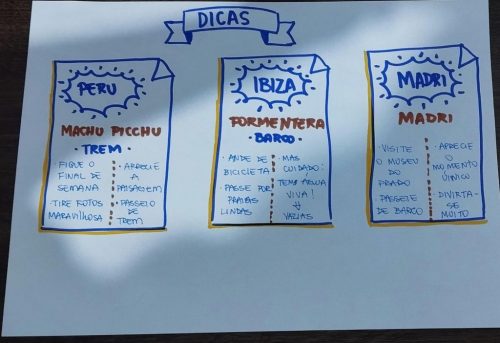 DICAS
PERU
MACHU PICCHU
· TREM ·
FIQUE O
FINAL DE
SEMANA
· TIRE FOTOS
MARAVILHOSA
· APRECIE
A
PAISAGEM
· PASSEIO
DE
TREM
IBIZA
FORMENTERA
· BARCO ·
· ANDE DE
BICICLETA
· PASSE POR
PRAIAS
LINDAS
· MAS
CUIDADO:
TEM ÁGUA
VIVA!
VÁRIAS
MADRI
MADRI
· VISITE
O MUSEU
DO
PRADO
· PASSEIE
DE BARCO
· APRECIE
O MOMENTO
ÚNICO
· DIVIRTA-
SE
MUITO